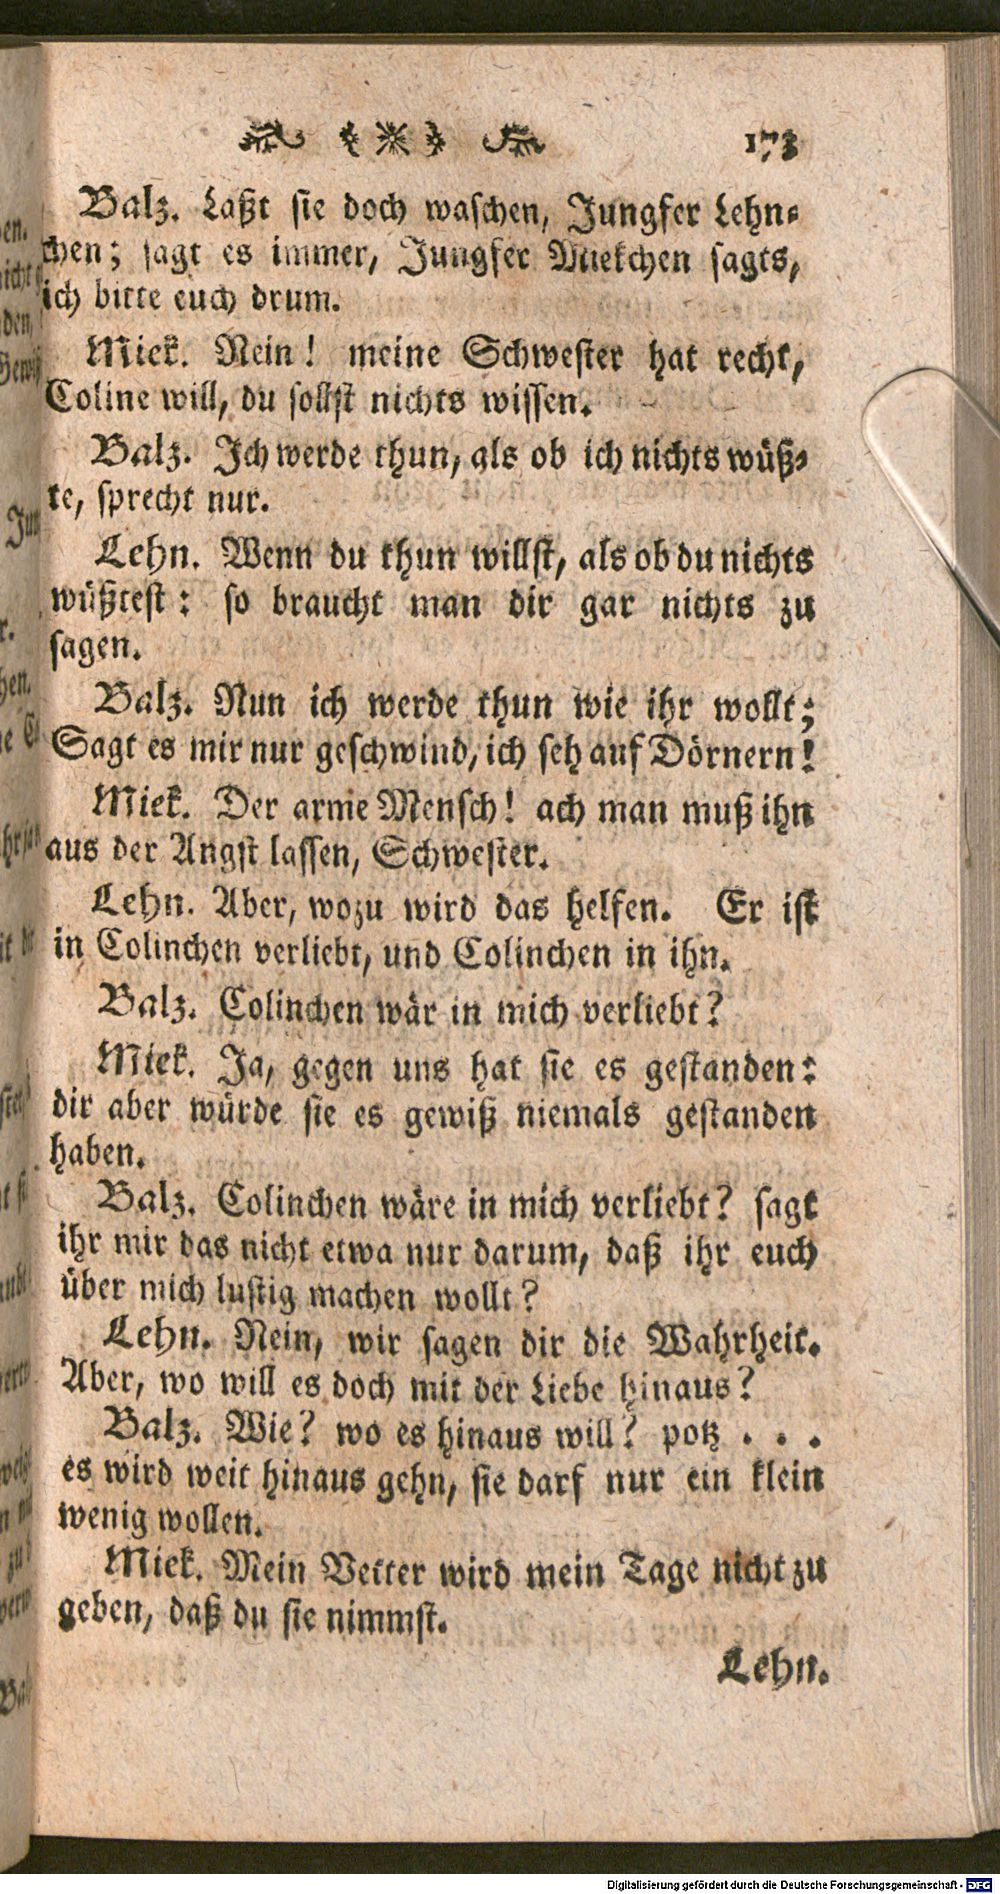 173
Balz. Laßt sie doch waschen, Jungfer Lehn-
chen; sagt es immer, Jungfer Miekchen sagts,
ich bitte euch drum.
Miek. Nein! meine Schwester hat recht,
Coline will, du sollst nichts wissen.
Balz. Ich werde thun, als ob ich nichts wüß-
te, sprecht nur.
Lehn. Wenn du thun willst, als ob du nichts
wüßtest: so braucht man dir gar nichts zu
sagen.
Balz. Nun ich werde thun wie ihr wollt;
Sagt es mir nur geschwind, ich seh auf Dörnern!
Miek. Der arme Mensch! ach man muß ihn
aus der Angst lassen, Schwester.
Lehn. Aber, wozu wird das helfen. Er ist
in Colinchen verliebt, und Colinchen in ihn.
Balz. Colinchen wär in mich verliebt?
Miek. Ja, gegen uns hat sie es gestanden:
dir aber würde sie es gewiß niemals gestanden
haben.
Balz. Colinchen wäre in mich verliebt? sagt
ihr mir das nicht etwa nur darum, daß ihr euch
über mich lustig machen wollt?
Lehn. Nein, wir sagen dir die Wahrheit.
Aber, wo will es doch mit der Liebe hinaus?
Balz. Wie? wo es hinaus will? potz . . .
es wird weit hinaus gehn, sie darf nur ein klein
wenig wollen.
Miek. Mein Vetter wird mein Tage nicht zu
geben, daß du sie nimmst.
Lehn.
Digitalisierung gefördert durch die Deutsche Forschungsgemeinschaft - DFG